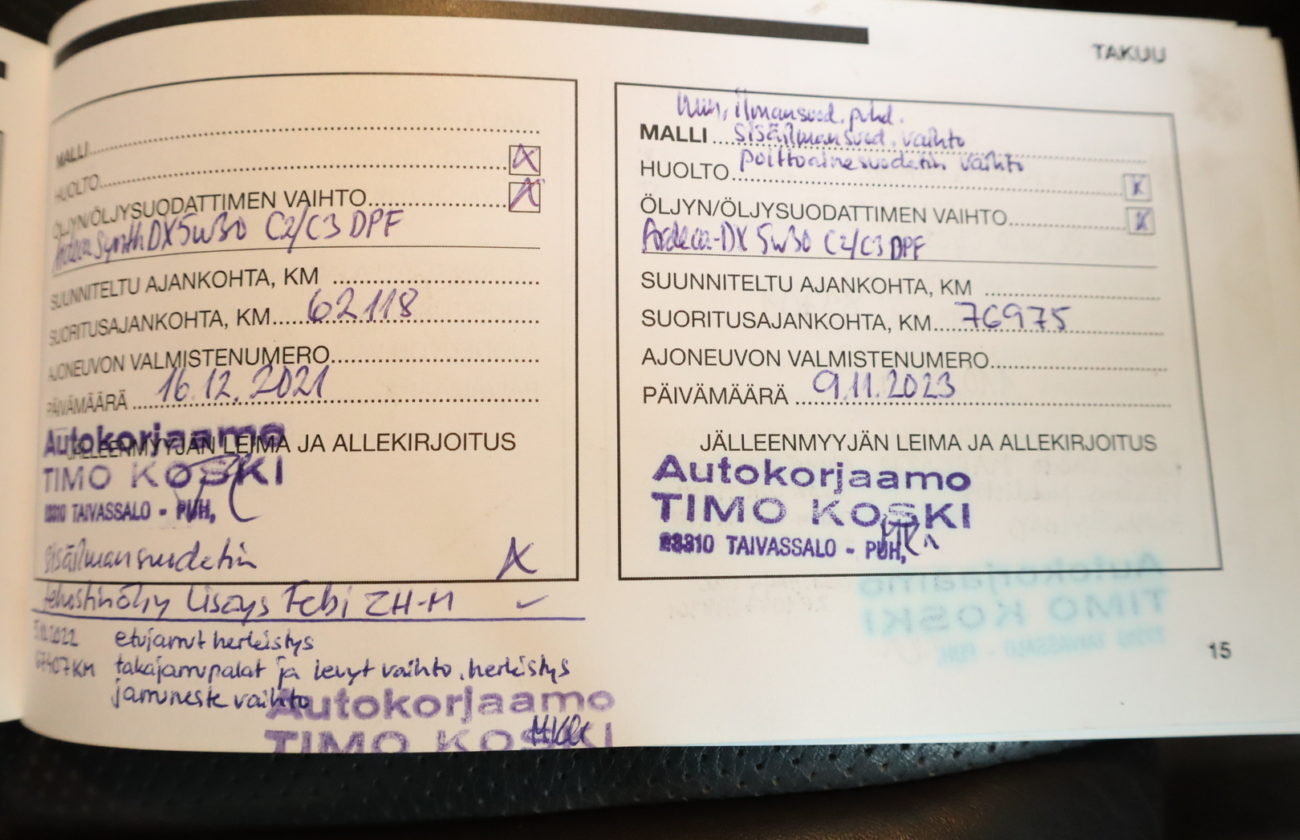 TAKUU
MALLI
HUOLTO X
ÖLJYN/ÖLJYSUODATTIMEN VAIHTO X
Ardeca Synth DX 5W30 C2/C3 DPF
SUUNNITELTU AJANKOHTA, KM
SUORITUSAJANKOHTA, KM 62118
AJONEUVON VALMISTENUMERO
PÄIVÄMÄÄRÄ 16.12.2021
JÄLLEENMYYJÄN LEIMA JA ALLEKIRJOITUS
Autokorjaamo
TIMO KOSKI
23310 TAIVASSALO - PUH,
Sisäilmansuodatin X
Lisäys Febi ZH-M ✓
2022 etujarrut herkistys
67407KM takajarrupalat ja levyt vaihto, herkistys
jarruneste vaihto
Autokorjaamo
TIMO KOSKI
ilmansuod. puhd.
MALLI sisäilmansuod. vaihto
polttoainesuodatin vaihto
HUOLTO X
ÖLJYN/ÖLJYSUODATTIMEN VAIHTO X
Ardeca-DX 5W30 C2/C3 DPF
SUUNNITELTU AJANKOHTA, KM
SUORITUSAJANKOHTA, KM 76975
AJONEUVON VALMISTENUMERO
PÄIVÄMÄÄRÄ 9.11.2023
JÄLLEENMYYJÄN LEIMA JA ALLEKIRJOITUS
Autokorjaamo
TIMO KOSKI
23310 TAIVASSALO - PUH,
15